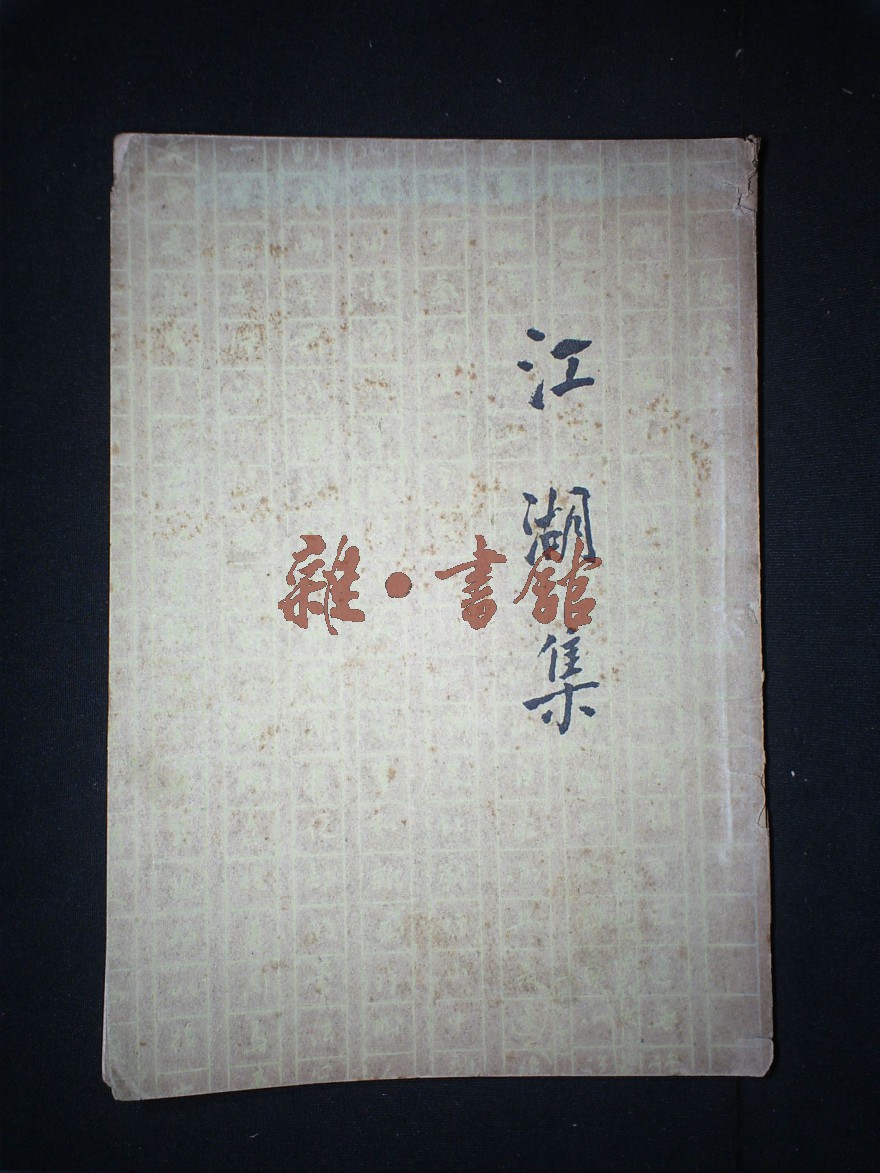 江湖集
雜·書館